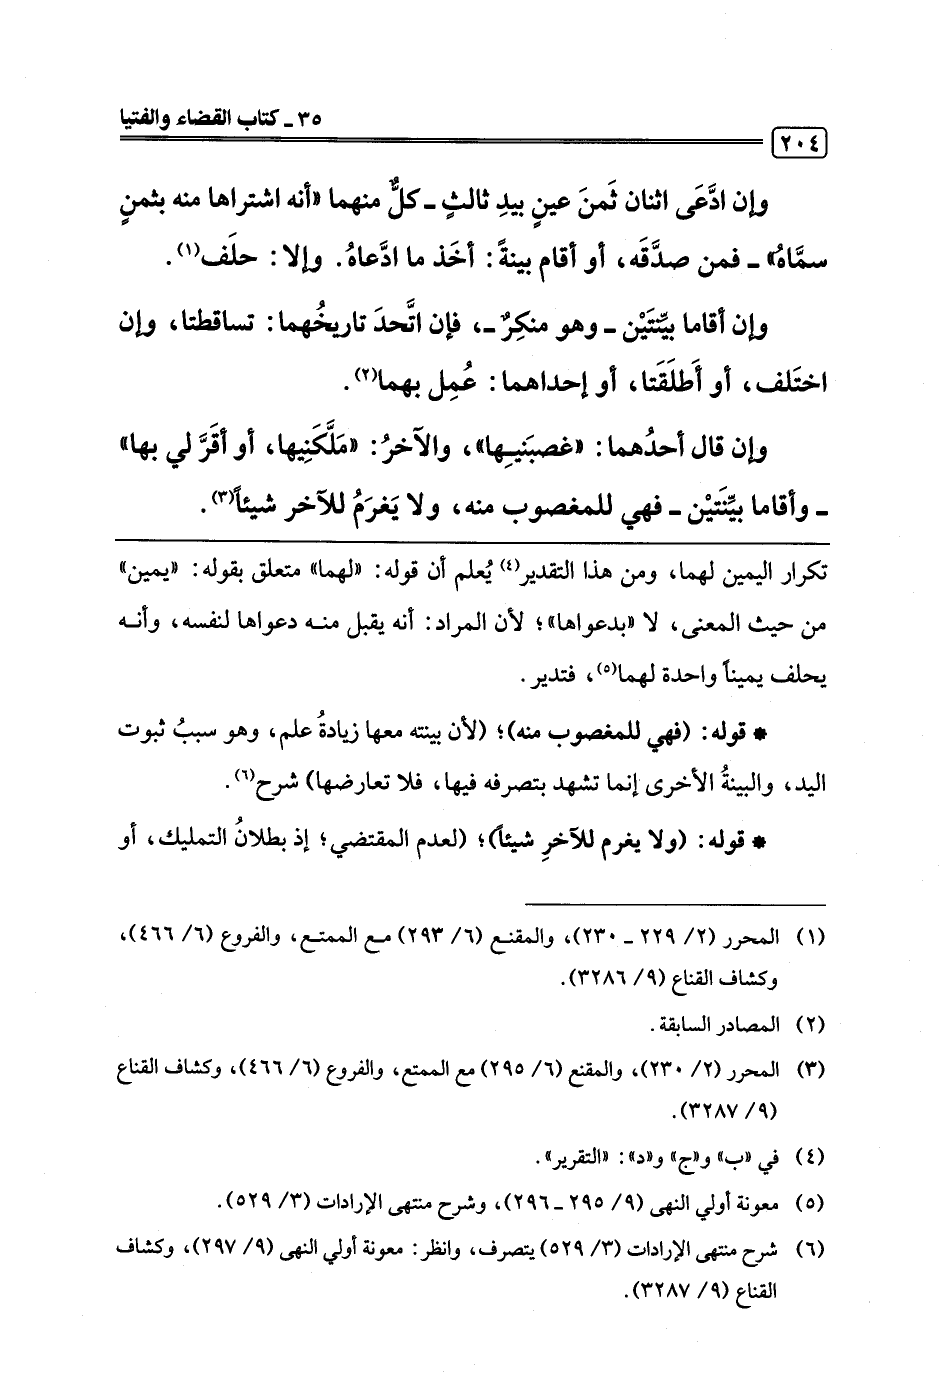 ٣٥ ـ كتاب القضاء والفتيا
٢٠٤
وإن ادَّعَى اثنان ثَمنَ عينٍ بيدِ ثالثٍ ـ كلٌّ منهما «أنه اشتراها منه بثمنٍ
سمَّاهُ» ـ فمن صدَّقَه، أو أقام بينةً: أخَذ ما ادَّعاهُ. وإلا: حلَف(١).
وإن أقاما بيِّنتَيْن ـ وهو منكِرٌ ـ، فإن اتَّحدَ تاريخُهما: تساقطتا، وإن
اختَلف، أو أَطلَقَتا، أو إحداهما: عُمِل بهما(٢).
وإن قال أحدُهما: «غصبَنيِها»، والآخرُ: «مَلَّكَنِيها، أو أقَرَّ لي بها»
ـ وأقاما بيِّنَتيْن ـ فهي للمغصوب منه، ولا يَغرَمُ للآخر شيئاً(٣).
تكرار اليمين لهما، ومن هذا التقدير(٤) يُعلم أن قوله: «لهما» متعلق بقوله: «يمين»
من حيث المعنى، لا «بدعواها»؛ لأن المراد: أنه يقبل منه دعواها لنفسه، وأنه
يحلف يميناً واحدة لهما(٥)، فتدير.
* قوله: (فهي للمغصوب منه)؛ (لأن بينته معها زيادةُ علم، وهو سببُ ثبوت
اليد، والبينةُ الأخرى إنما تشهد بتصرفه فيها، فلا تعارضها) شرح(٦).
* قوله: (ولا يغرم للآخرِ شيئاً)؛ (لعدم المقتضي؛ إذ بطلانُ التمليك، أو
(١) المحرر (٢/ ٢٢٩ ـ ٢٣٠)، والمقنع (٦/ ٢٩٣) مع الممتع، والفروع (٦/ ٤٦٦)،
وكشاف القناع (٩/ ٣٢٨٦).
(٢) المصادر السابقة.
(٣) المحرر (٢/ ٢٣٠)، والمقنع (٦/ ٢٩٥) مع الممتع، والفروع (٦/ ٤٦٦)، وكشاف القناع
(٩/ ٣٢٨٧).
(٤) في «ب» و«ج» و«د»: «التقرير».
(٥) معونة أولي النهى (٩/ ٢٩٥ ـ ٢٩٦)، وشرح منتهى الإرادات (٣/ ٥٢٩).
(٦) شرح منتهى الإرادات (٣/ ٥٢٩) يتصرف، وانظر: معونة أولي النهى (٩/ ٢٩٧)، وكشاف
القناع (٩/ ٣٢٨٧).